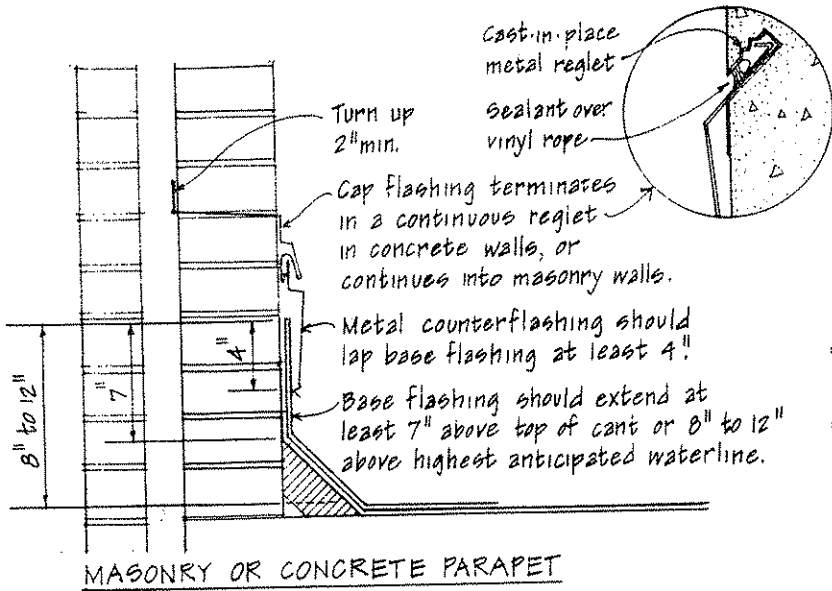 Cast-in-place
metal reglet
Sealant over
vinyl rope
Turn up
2" min.
Cap flashing terminates
in a continuous reglet
in concrete walls, or
continues into masonry walls.
Metal counterflashing should
lap base flashing at least 4".
Base flashing should extend at
least 7" above top of cant or 8" to 12"
above highest anticipated waterline.
8" to 12"
7"
4"
MASONRY OR CONCRETE PARAPET